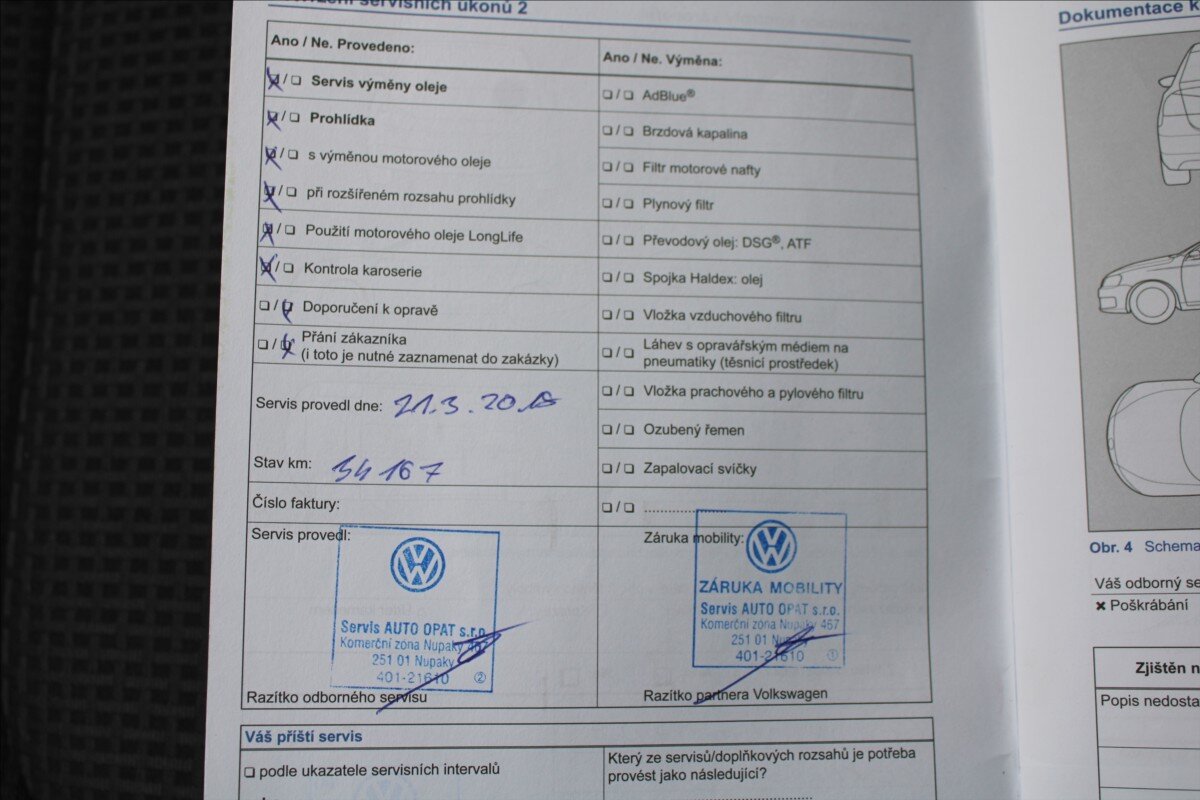 servisních úkonů 2
Ano / Ne. Provedeno:
❏ / ❏ Servis výměny oleje
❏ / ❏ Prohlídka
❏ / ❏ s výměnou motorového oleje
❏ / ❏ při rozšířeném rozsahu prohlídky
❏ / ❏ Použití motorového oleje LongLife
❏ / ❏ Kontrola karoserie
❏ / ❏ Doporučení k opravě
❏ / ❏ Přání zákazníka
(i toto je nutné zaznamenat do zakázky)
Servis provedl dne: 21.3.20
Stav km: 34 167
Číslo faktury:
Servis provedl:
Servis AUTO OPAT s.r.o.
Komerční zóna Nupaky 467
251 01 Nupaky
401-21610 ②
Razítko odborného servisu
Ano / Ne. Výměna:
❏ / ❏ AdBlue®
❏ / ❏ Brzdová kapalina
❏ / ❏ Filtr motorové nafty
❏ / ❏ Plynový filtr
❏ / ❏ Převodový olej: DSG®, ATF
❏ / ❏ Spojka Haldex: olej
❏ / ❏ Vložka vzduchového filtru
❏ / ❏ Láhev s opravářským médiem na
pneumatiky (těsnicí prostředek)
❏ / ❏ Vložka prachového a pylového filtru
❏ / ❏ Ozubený řemen
❏ / ❏ Zapalovací svíčky
❏ / ❏ ......................
Záruka mobility:
ZÁRUKA MOBILITY
Servis AUTO OPAT s.r.o.
Komerční zóna Nupaky 467
251 01 Nupaky
401-21610 ①
Razítko partnera Volkswagen
Váš příští servis
❏ podle ukazatele servisních intervalů
Který ze servisů/doplňkových rozsahů je potřeba
provést jako následující?
Dokumentace k
Obr. 4 Schema
Váš odborný se
✖ Poškrábání
Zjištěn n
Popis nedosta